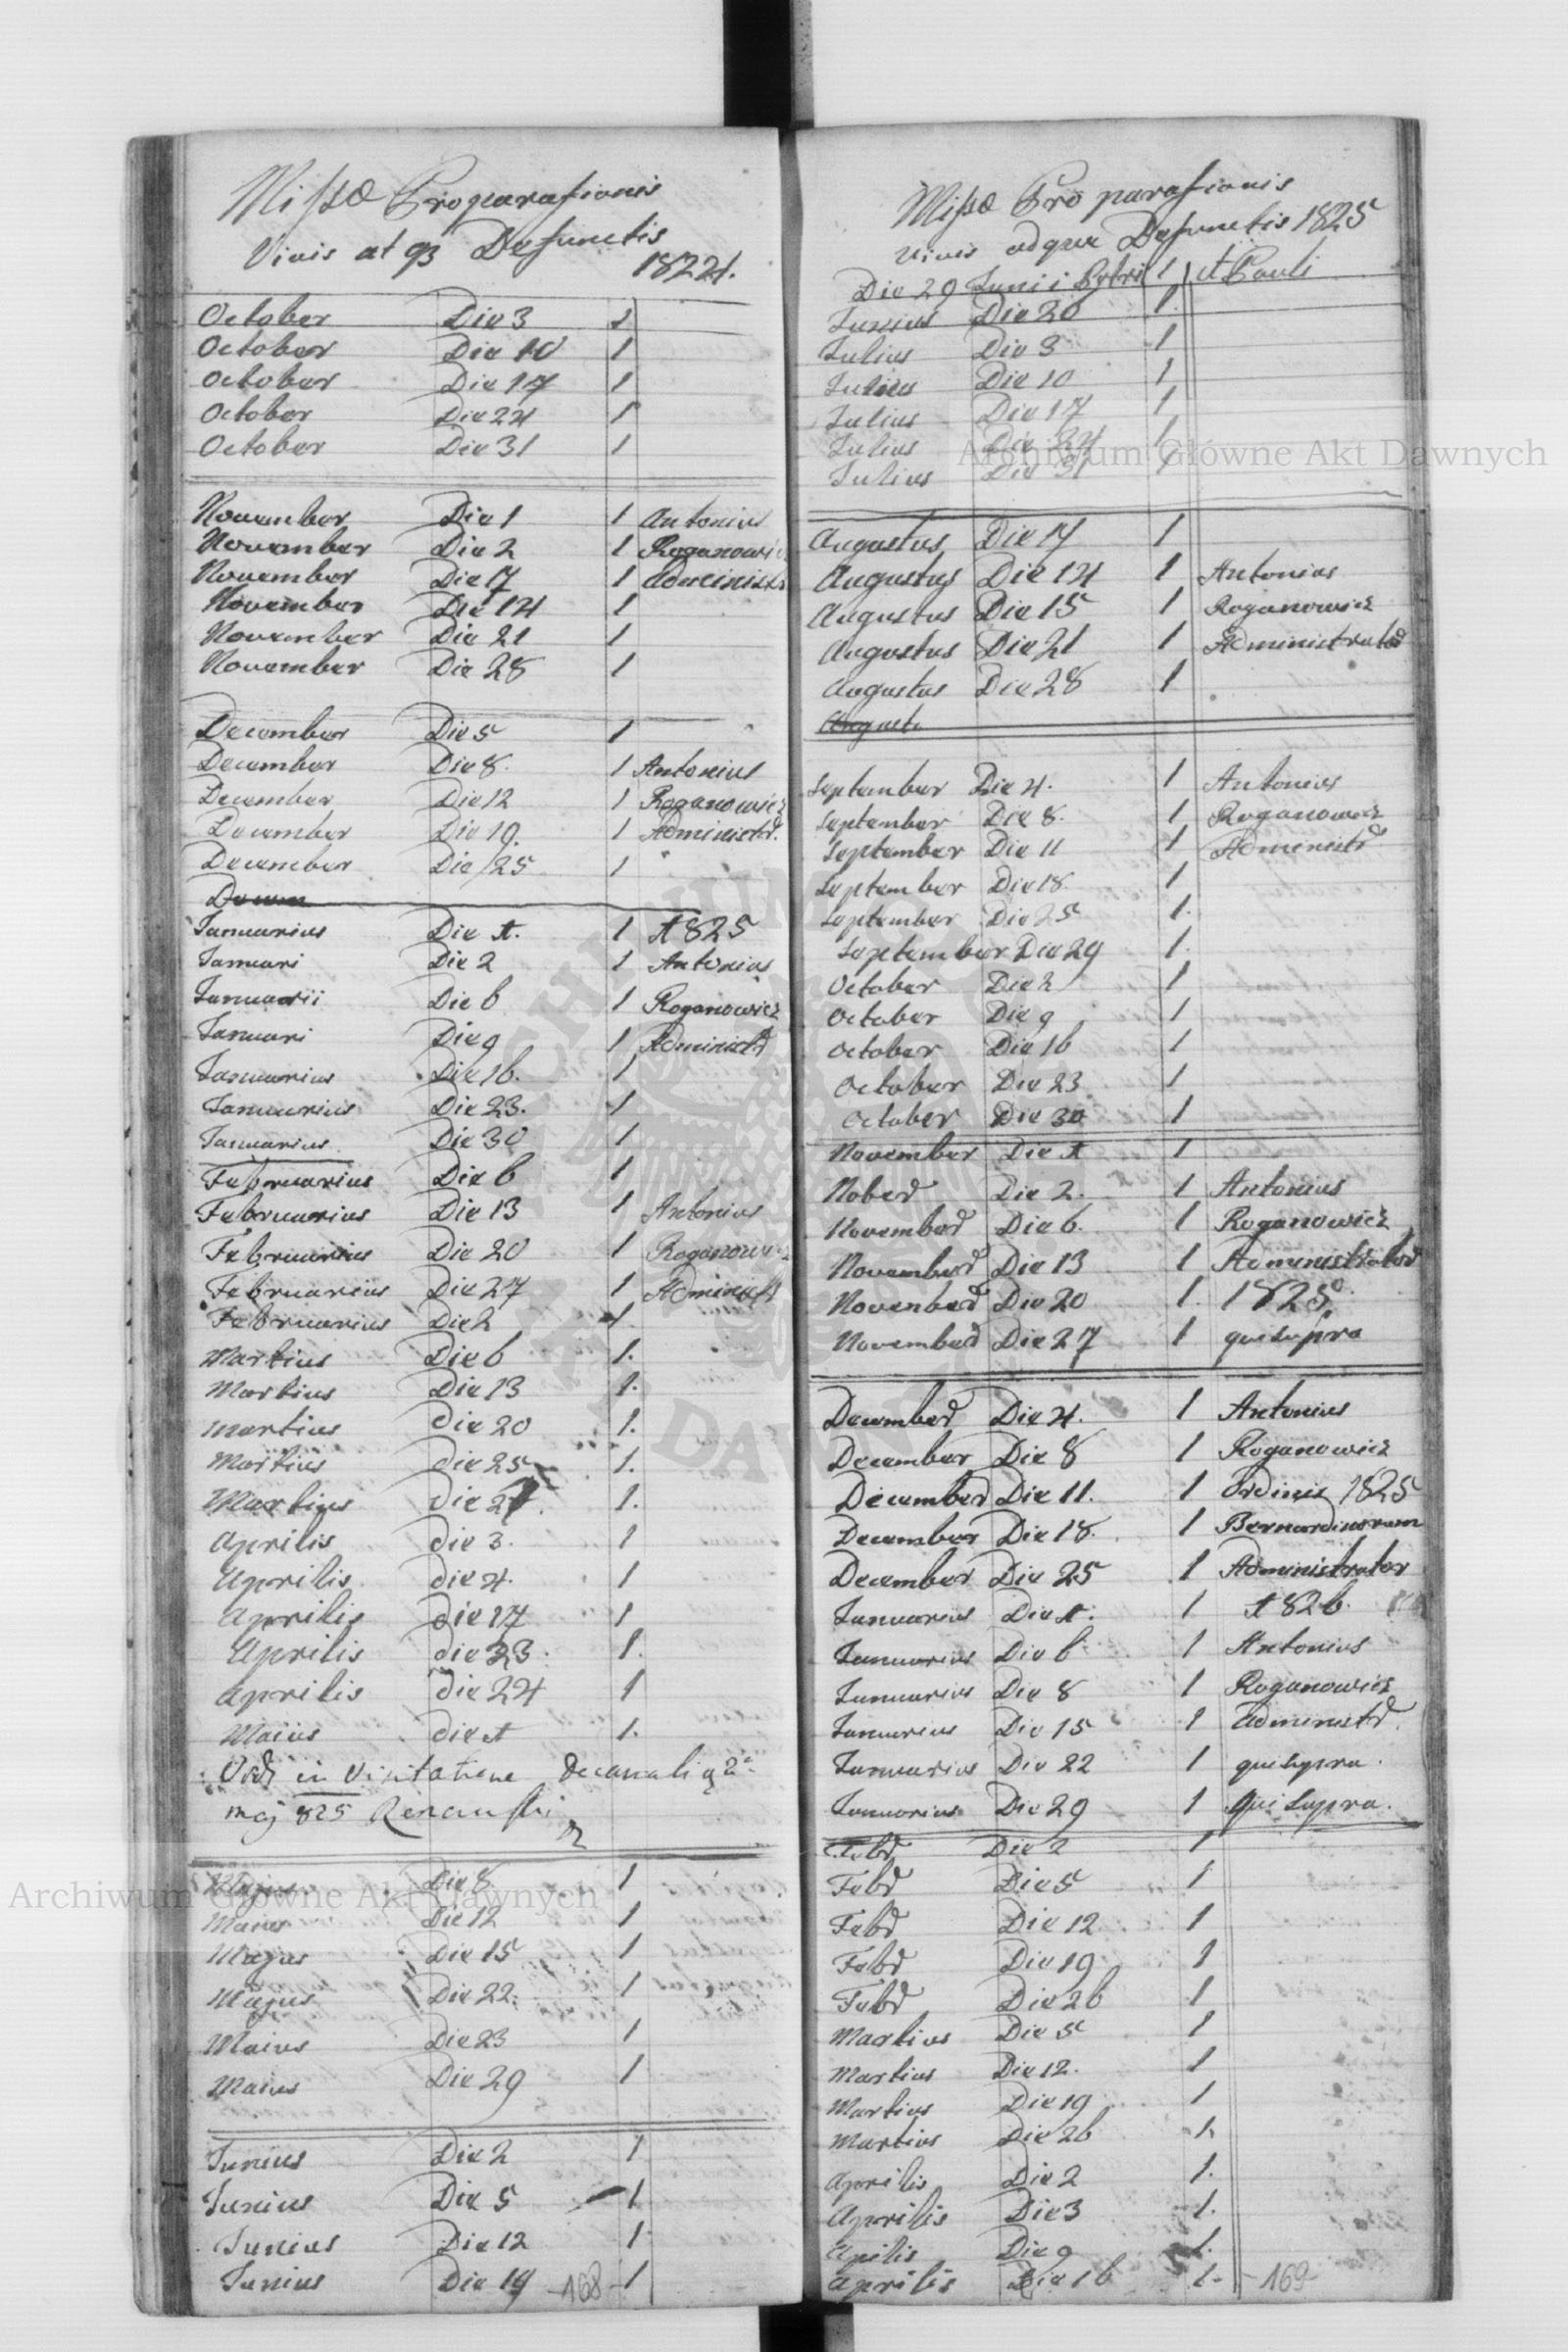 Missæ Proparafianis
Vivis atq3 Defunctis
1824.
October Die 3 1
October Die 10 1
October Die 17 1
October Die 24 1
October Die 31 1
November Die 1 1 Antonius
November Die 2 1 Roganowicz
November Die 7 1 Administr
November Die 14 1
November Die 21 1
November Die 28 1
December Die 5 1
December Die 8. 1 Antonius
December Die 12 1 Roganowicz
December Die 19. 1 Administr.
December Die 25 1
Decem
Januarius Die 1. 1 1825
Januari Die 2 1 Antonius
Januarii Die 6 1 Roganowicz
Januari Die 9 1 Administr
Januarius Die 16. 1
Januarius Die 23. 1
Januarius Die 30 1
Februarius Die 6 1
Februarius Die 13 1 Antonius
Februarius Die 20 1 Roganowicz
Februarius Die 27 1 Administr
Februarius Die 2 1
Martius Die 6 1.
Martius Die 13 1.
Martius die 20 1.
Martius die 25 1.
Martius die 27. 1.
Aprilis die 3. 1
Aprilis die 4. 1
Aprilis die 17 1
Aprilis die 23. 1.
Aprilis die 24 1
Maius die 1 1.
Vidi in Visitatione decanali 2a
maj 825
Majus Die 8 1
Maius Die 12 1
Majus Die 15 1
Majus Die 22. 1
Maius Die 23 1
Maius Die 29 1
Junius Die 2 1
Junius Die 5 1
Junius Die 12 1
Junius Die 19 1
-168-
Missæ Pro parafianis
vivis adque Defunctis 1825
Die 29 Junii Petri 1 et Pauli
Junius Die 26 1.
Julius Die 3 1
Julius Die 10 1
Julius Die 17 1
Julius Die 24 1
Julius Die 31 1
Augustus Die 7 1
Augustus Die 14 1 Antonius
Augustus Die 15 1 Roganowicz
Augustus Die 21 1 Administrator
Augustus Die 28 1
Augustu
September Die 4. 1 Antonius
September Die 8. 1 Roganowicz
September Die 11 1 Administr
September Die 18. 1
September Die 25 1.
September Die 29 1.
October Die 2 1
October Die 9 1
October Die 16 1
October Die 23 1
October Die 30 1
November Die 1 1
Nober Die 2. 1 Antonius
November Die 6. 1 Roganowicz
November Die 13 1 Administrator
November Die 20 1. 1825.
November Die 27 1 qui supra
December Die 4. 1 Antonius
December Die 8 1 Roganowicz
December Die 11. 1 Ordinis 1825
December Die 18. 1 Bernardinorum
December Die 25 1 Administrator
Januarius Die 1. 1 1826.
Januarius Die 6 1 Antonius
Januarius Die 8 1 Roganowicz
Januarius Die 15 1 Administr.
Januarius Die 22 1 qui supra.
Januarius Die 29 1 Qui Supra.
Febr Die 2 1
Febr Die 5 1
Febr Die 12 1
Febr Die 19 1
Febr Die 26 1
Martius Die 5 1
Martius Die 12. 1
Martius Die 19 1
Martius Die 26 1.
Aprilis Die 2 1.
Aprilis Die 3 1.
Apilis Die 9 1.
Aprilis Die 16 1.
-169-
Archiwum Główne Akt Dawnych
Archiwum Główne Akt Dawnych